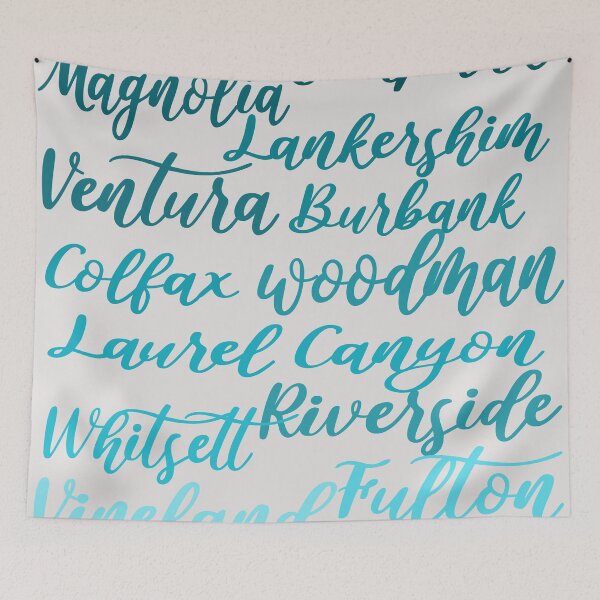 Magnolia
Lankershim
Ventura Burbank
Colfax woodman
Laurel Canyon
Whitsett Riverside
Vineland Fulton